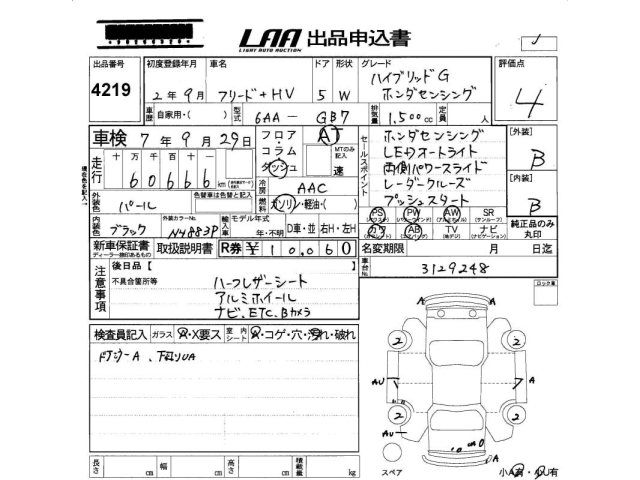 LAA 出品申込書
LIGHT AUTO AUCTION
出品番号 初度登録年月 車名 ドア 形状 グレード 評価点
4219 2年9月 フリード+HV 5 W ハイブリッドG ホンダセンシング 4
車歴 自家用・( ) 型式 6AA-GB7 排気量 1,500cc 定員 人
車検 7年9月29日 フロア・コラム・ダッシュ AT MTのみ記入 速
セールスポイント ホンダセンシング
LEDオートライト
両側パワースライド
レーダクルーズ
プッシュスタート
[外装] B
[内装] B
純正品のみ丸印
走行 十 万 千 百 十 一
60666 km
冷房 AAC
燃料 ガソリン・軽油・( )
外装色 パール 色替車は色替と記入
内装色 ブラック 外装カラーNo. NH883P 輸入車 モデル年式 年・不明 D車・並 右H・左H
PS PW AW SR
(サンルーフ)
AB TV ナビ
(エアバッグ) (ナビゲーション)
新車保証書 取扱説明書 R券 ¥10,060 名変期限 月 日迄
ディーラー捺印あるもの
車台No. 3129248
注意事項 後日品【 】
不具合箇所等 ハーフレザーシート
アルミホイール
ナビ、ETC、Bカメラ
ロック車
検査員記入 ガラス A・X要ス 室内シート A・コゲ・穴・汚れ・破れ
A A
2 2
AU A
2 2
AU
A
長さ cm 幅 cm 高さ cm 積載量 kg
スペア 小A有・小U有